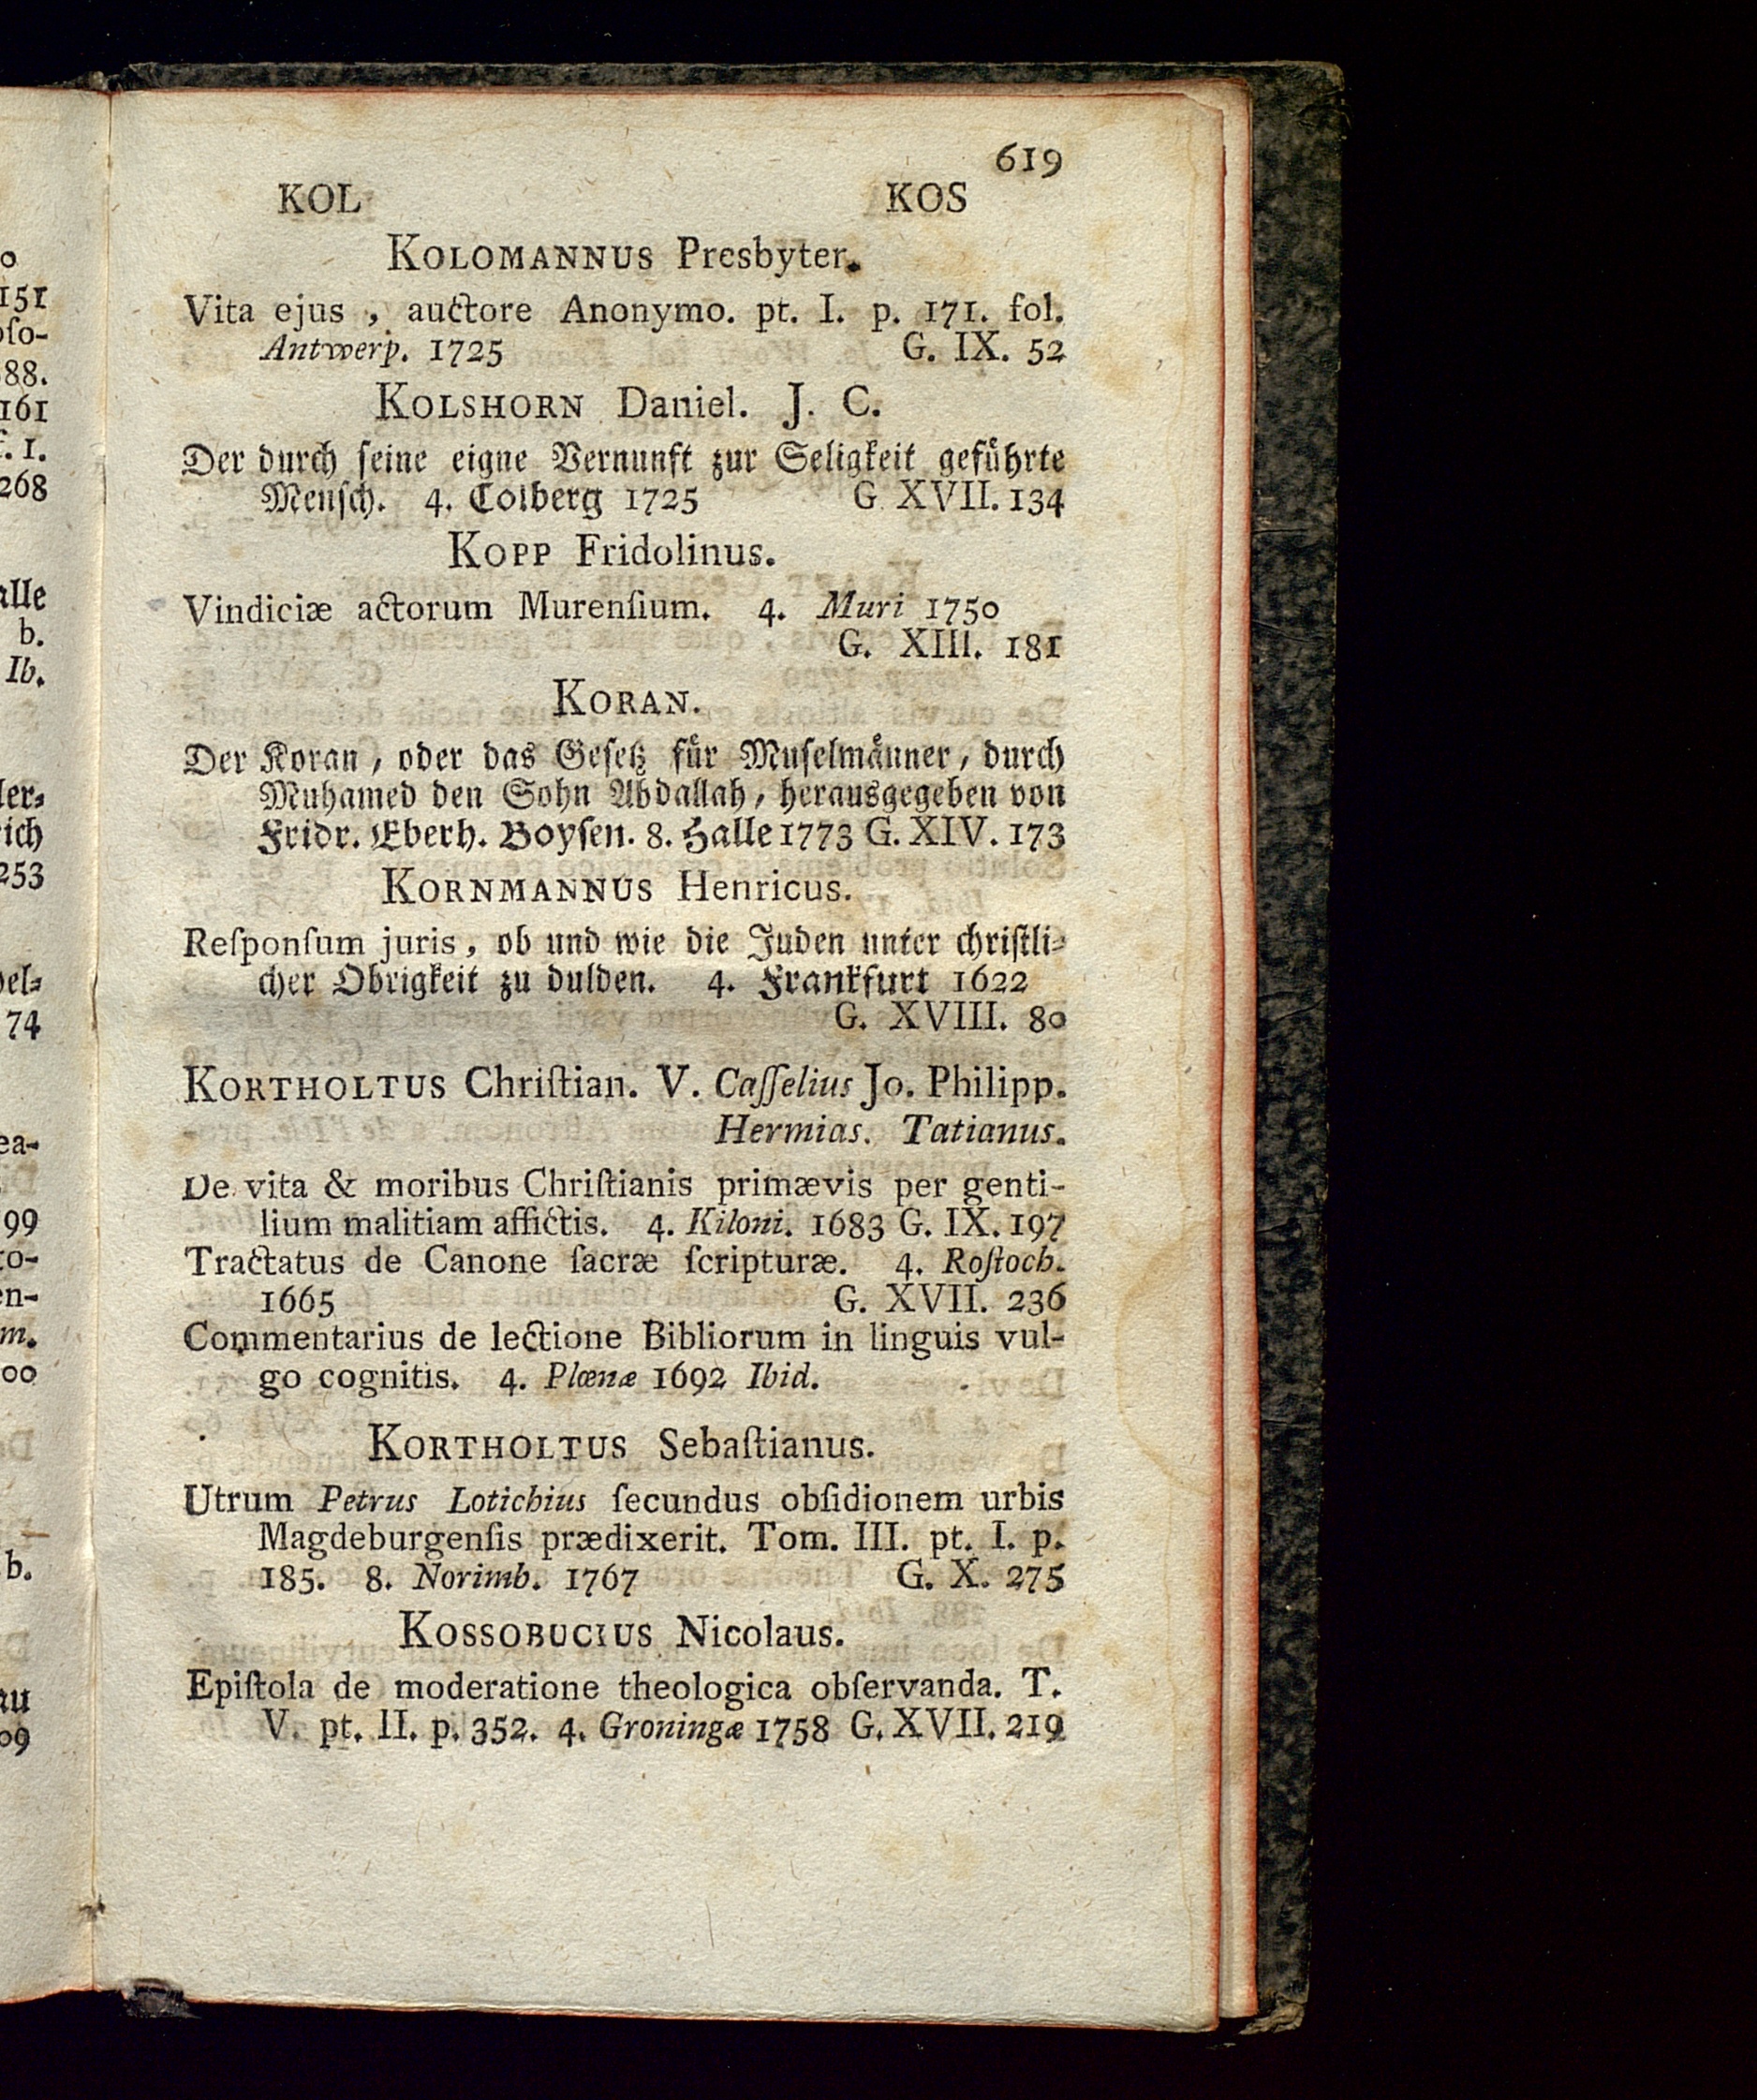 619
KOL KOS
KOLOMANNUS Presbyter.
Vita ejus , auctore Anonymo. pt. I. p. 171. fol.
Antwerp. 1725 G. IX. 52
KOLSHORN Daniel. J. C.
Der durch ſeine eigne Vernunft zur Seligkeit geführte
Menſch. 4. Colberg 1725 G XVII. 134
KOPP Fridolinus.
Vindiciæ actorum Murenſium. 4. Muri 1750
G. XIII. 181
KORAN.
Der Koran, oder das Geſetz für Muſelmänner, durch
Muhamed den Sohn Abdallah, herausgegeben von
Fridr. Eberh. Boyſen. 8. Halle 1773 G. XIV. 173
KORNMANNUS Henricus.
Reſponſum juris, ob und wie die Juden unter chriſtli-
cher Obrigkeit zu dulden. 4. Frankfurt 1622
G. XVIII. 80
KORTHOLTUS Chriſtian. V. Caſſelius Jo. Philipp.
Hermias. Tatianus.
De vita & moribus Chriſtianis primævis per genti-
lium malitiam affictis. 4. Kiloni. 1683 G. IX. 197
Tractatus de Canone ſacræ ſcripturæ. 4. Roſtoch.
1665 G. XVII. 236
Commentarius de lectione Bibliorum in linguis vul-
go cognitis. 4. Plœnæ 1692 Ibid.
KORTHOLTUS Sebaſtianus.
Utrum Petrus Lotichius ſecundus obſidionem urbis
Magdeburgenſis prædixerit. Tom. III. pt. I. p.
185. 8. Norimb. 1767 G. X. 275
KOSSOBUCIUS Nicolaus.
Epiſtola de moderatione theologica obſervanda. T.
V. pt. II. p. 352. 4. Groningæ 1758 G. XVII. 219